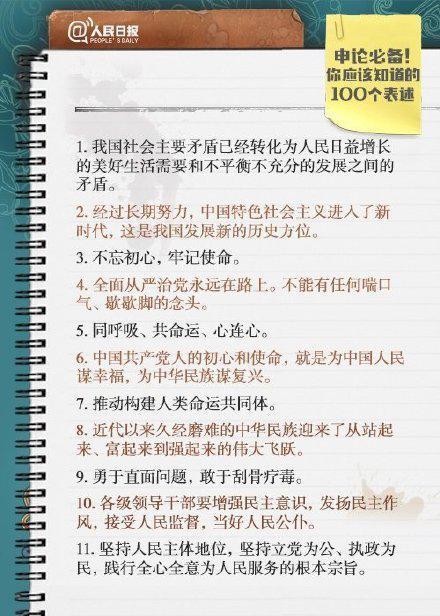 @人民日报
PEOPLE'S DAILY
申论必备!
你应该知道的
100个表述
1. 我国社会主要矛盾已经转化为人民日益增长
的美好生活需要和不平衡不充分的发展之间的
矛盾。
2. 经过长期努力，中国特色社会主义进入了新
时代，这是我国发展新的历史方位。
3. 不忘初心，牢记使命。
4. 全面从严治党永远在路上。不能有任何喘口
气、歇歇脚的念头。
5. 同呼吸、共命运、心连心。
6. 中国共产党人的初心和使命，就是为中国人民
谋幸福，为中华民族谋复兴。
7. 推动构建人类命运共同体。
8. 近代以来久经磨难的中华民族迎来了从站起
来、富起来到强起来的伟大飞跃。
9. 勇于直面问题，敢于刮骨疗毒。
10. 各级领导干部要增强民主意识，发扬民主作
风，接受人民监督，当好人民公仆。
11. 坚持人民主体地位，坚持立党为公、执政为
民，践行全心全意为人民服务的根本宗旨。